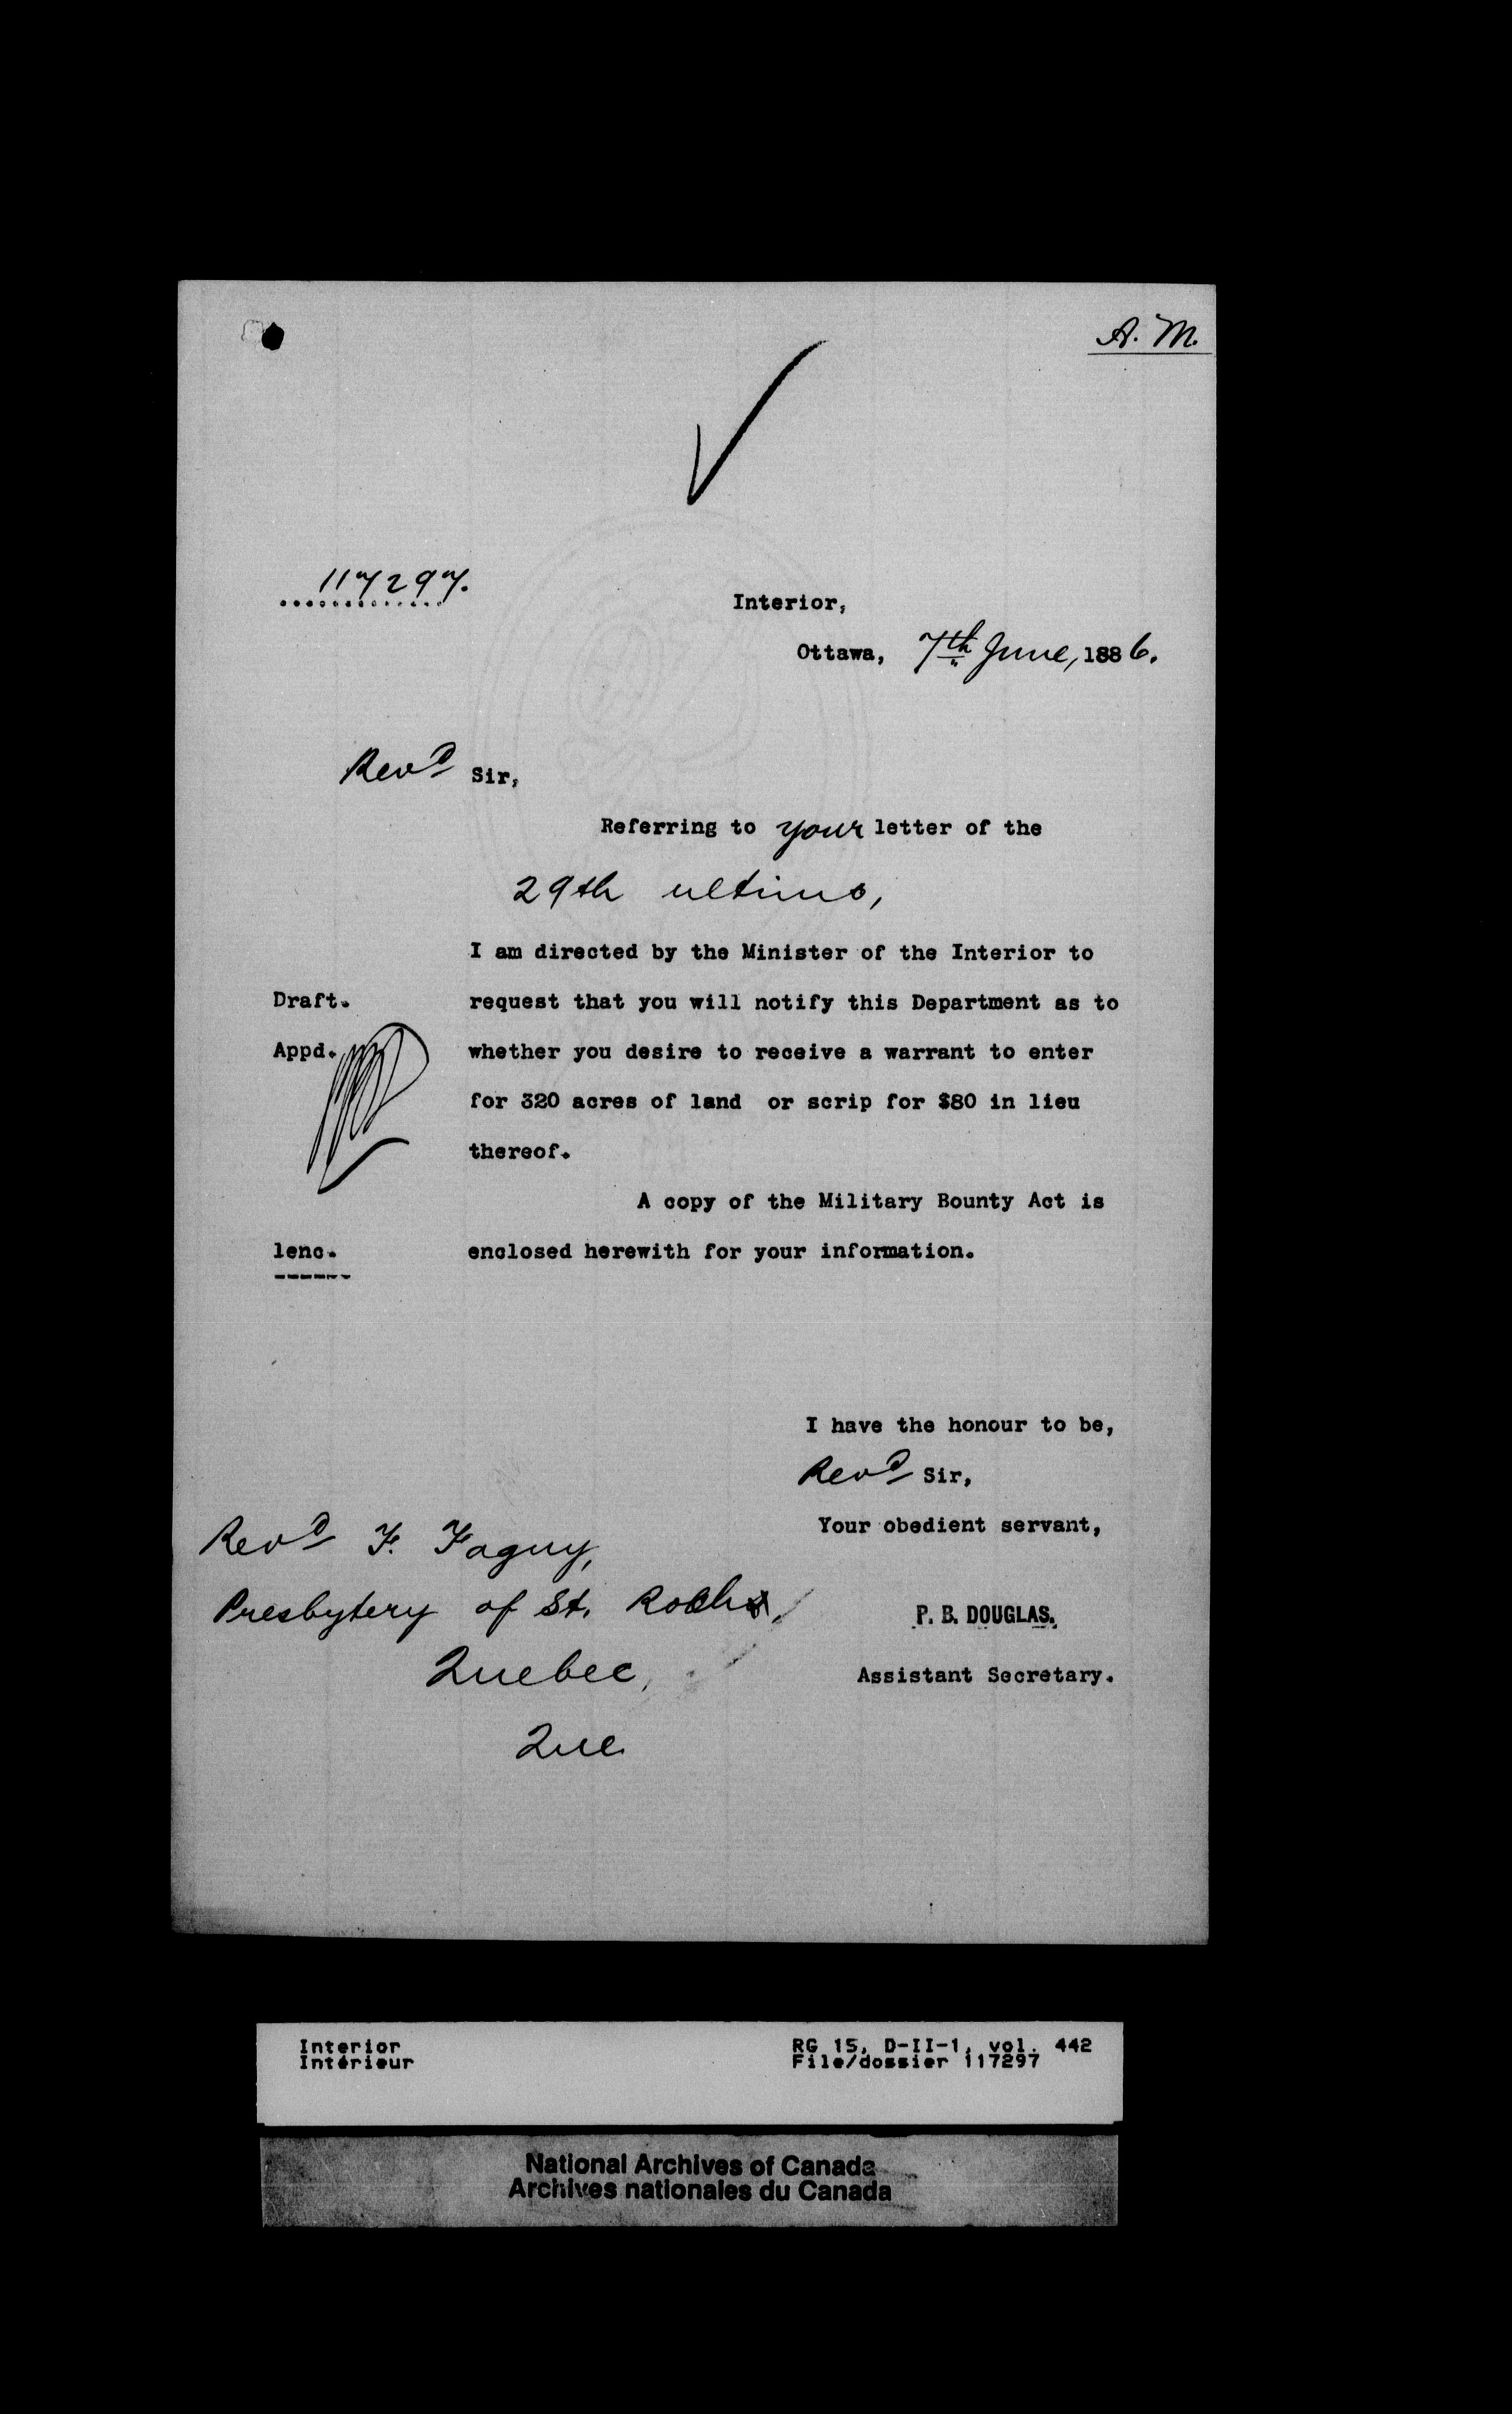 A. M.
117297.
Interior,
Ottawa, 7th June, 1886.
Revd Sir,
Referring to your letter of the
29th ultimo,
I am directed by the Minister of the Interior to
Draft. request that you will notify this Department as to
Appd. whether you desire to receive a warrant to enter
for 320 acres of land or scrip for $80 in lieu
thereof.
A copy of the Military Bounty Act is
1enc. enclosed herewith for your information.
I have the honour to be,
Revd Sir,
Your obedient servant,
Revd F. Faguy,
Presbytery of St. Rochs,
P. B. DOUGLAS.
Quebec,
Assistant Secretary.
Que.
Interior
Intérieur
RG 15, D-II-1, vol. 442
File/dossier 117297
National Archives of Canada
Archives nationales du Canada